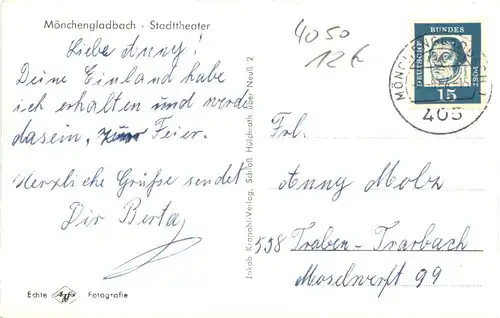 Mönchengladbach · Stadttheater
Liebe Anny!
Deine Einland habe
ich erhalten und werde
dasein, zur Feier.
Herzliche Grüße sendet
Dir Berta
Echte Agfa Fotografie
Jakob Krapohl-Verlag, Schloß Hülchrath über Neuß 2
4050
12 €
DEUTSCHE BUNDES
15
MÖNCHENGL
405
Frl.
Anny Molz
558 Traben-Trarbach
Moselwerft 99